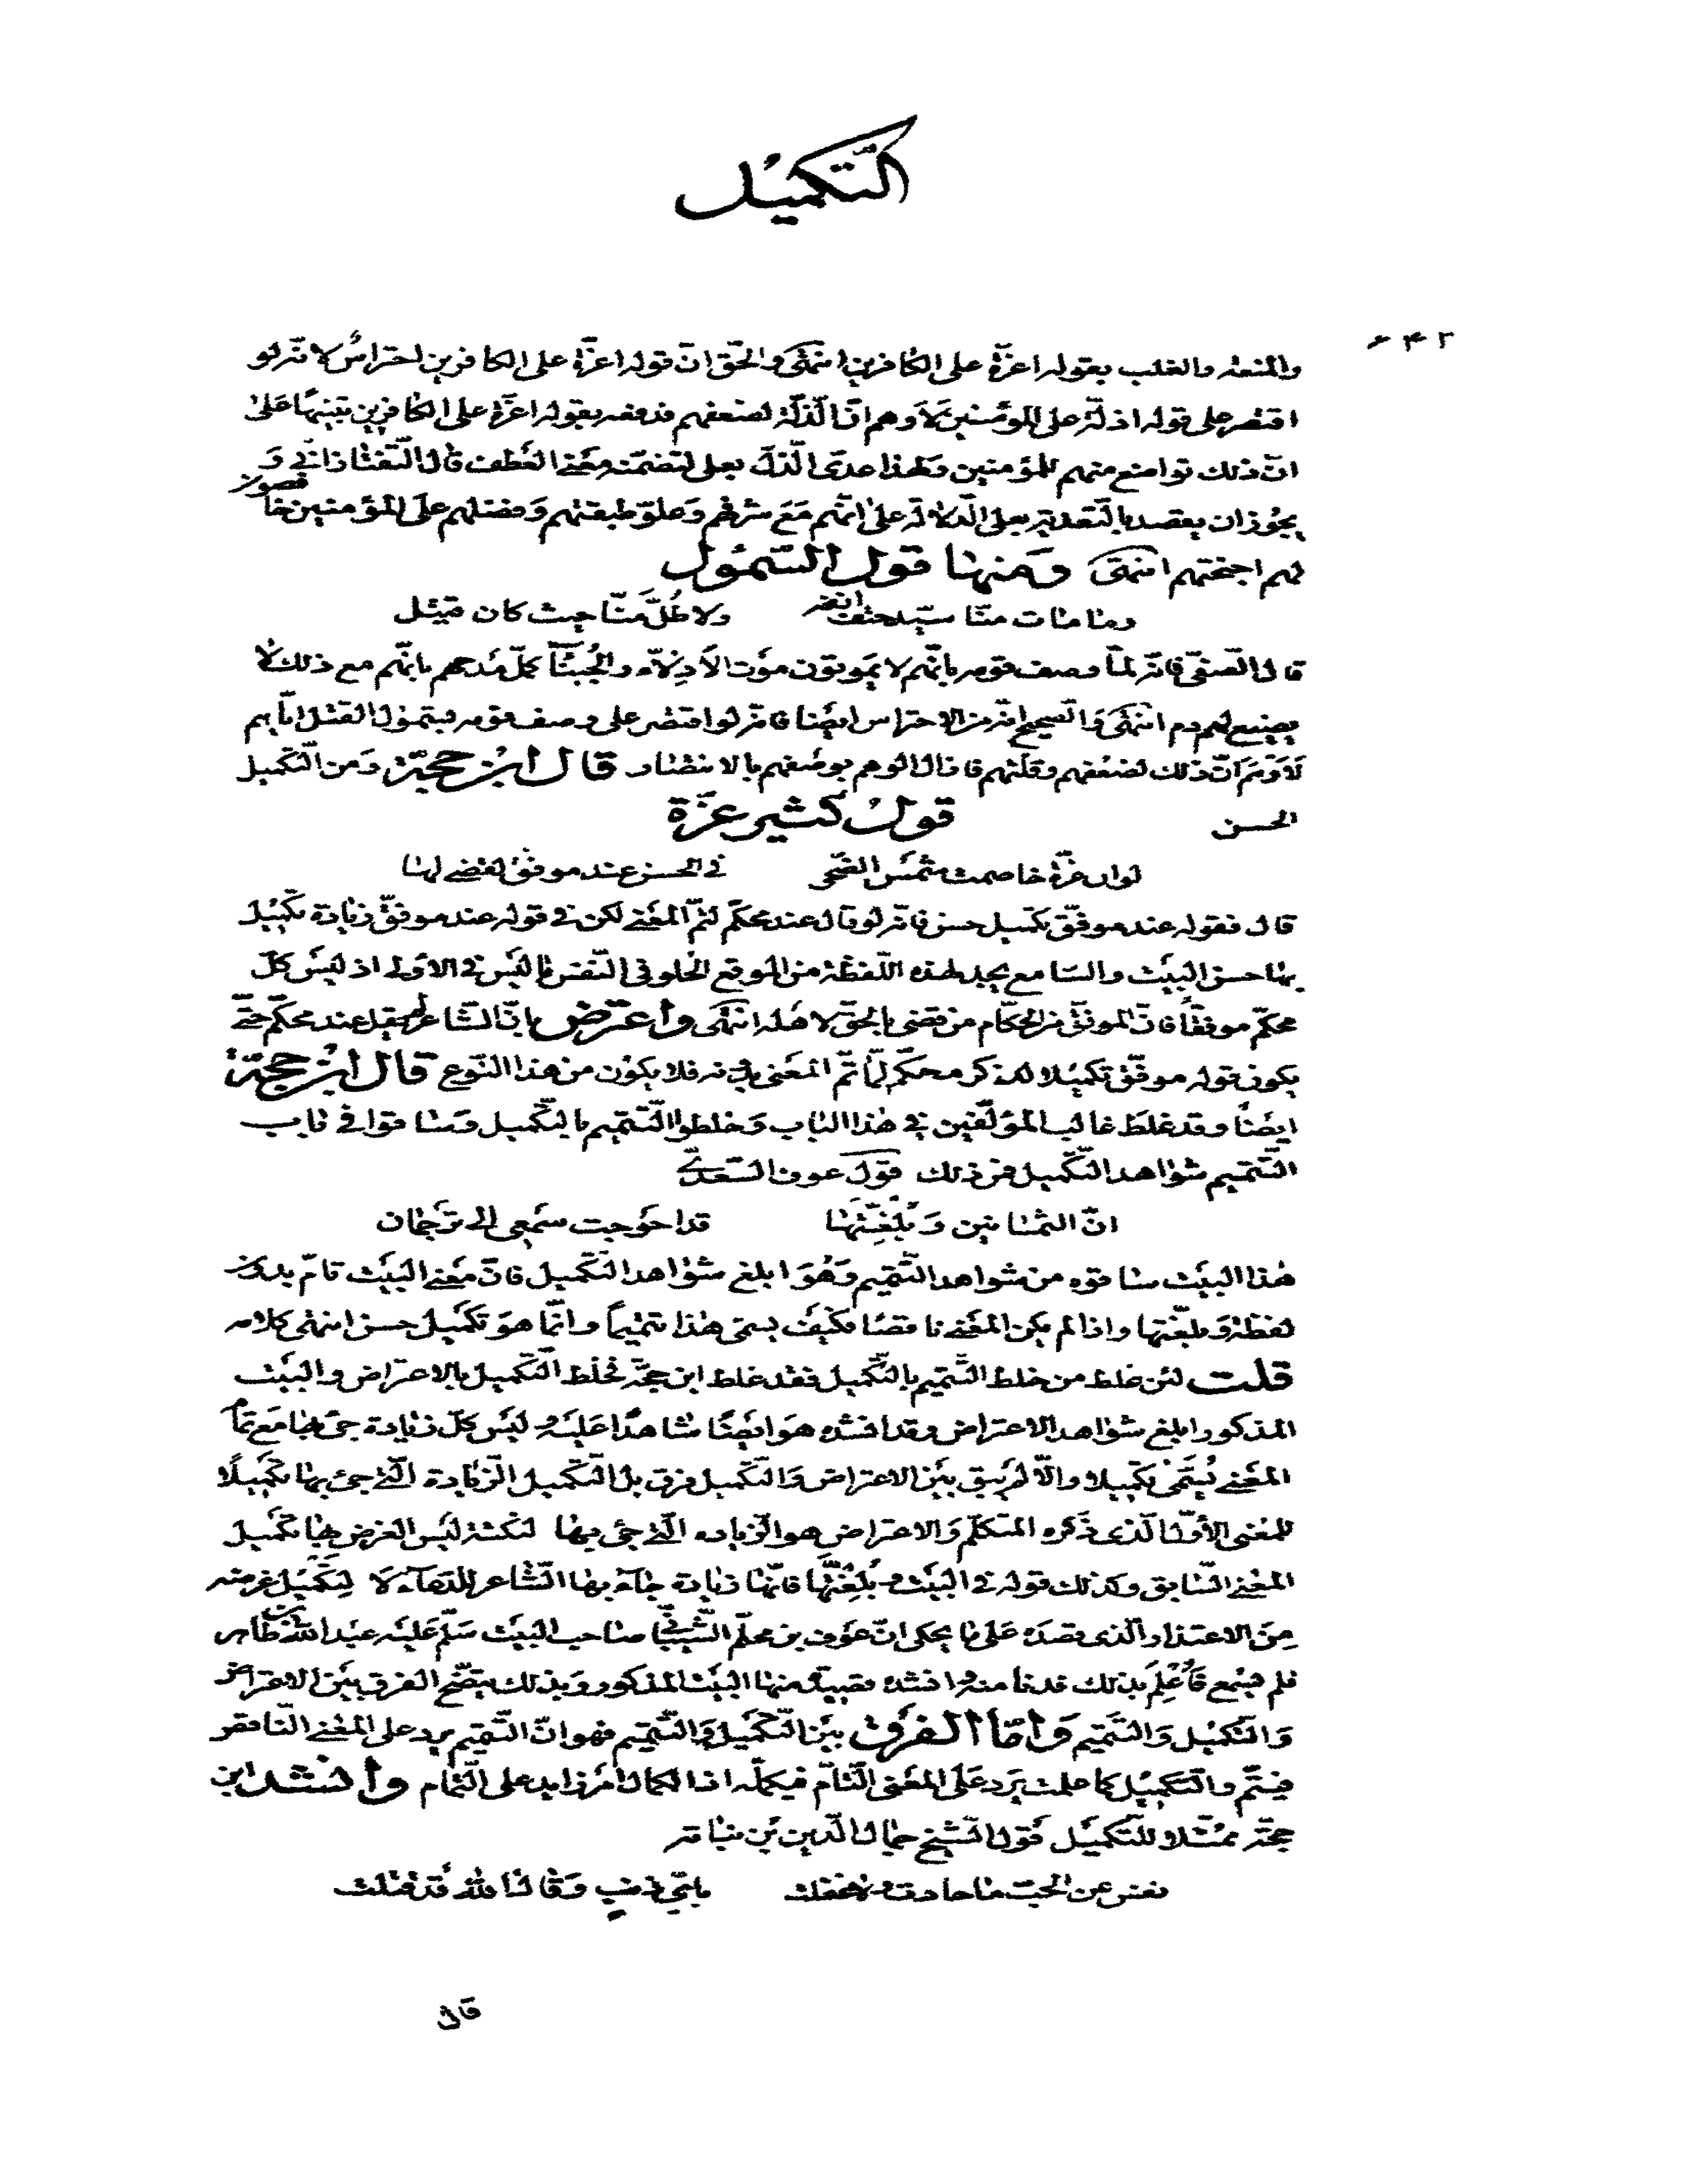 التكميل
٦٤٢
والمنعة والغلب بقوله اعزّة على الكافرين انتهى والحقّ انّ قوله اعزّة على الكافرين احتراس لانّه لو
اقتصر على قوله اذلّة على المؤمنين لاوهم انّ الذلّة لضعفهم فدفعه بقوله اعزّة على الكافرين تنبيهًا على
انّ ذلك تواضع منهم للمؤمنين ولهذا عدّى الذلّ بعلى لتضمّنه معنى العطف قال التفتازاني و
يجوز ان يقصد بالتعدية بعلى الدلالة على انّهم مع شرفهم وعلوّ طبقتهم وفضلهم على المؤمنين خافضون
لهم اجنحتهم انتهى ومنها قول السّمؤل
وما مات منّا سيّد حتف انفه ولا طُلَّ منّا حيث كان قتيل
قال الصّفيّ فانّه لمّا وصف قومه بانّهم لا يموتون موت الاذلّاء والجبناء كمّل مدحهم بانّهم مع ذلك لا
يضيع لهم دم انتهى والصحيح انّه من الاحتراس ايضًا فانّه لو اقتصر على وصف قومه بشمول القتل ايّاهم
لاوهم انّ ذلك لضعفهم وقلّتهم فازال الوهم بوصفهم بالانتصار قال ابن حجّة ومن التكميل
الحسن قول كثير عزّة
لو ان عزّة خاصمت شمس الضّحى في الحسن عند موفّق لقضى لها
قال فقوله عند موفّق تكميل حسن فانّه لو قال عند محكّم لتمّ المعنى لكن في قوله عند موفّق زيادة تكميل
بها حسن البيت والسّامع يجد لهذه اللّفظة من الموقع الحلو في النّفس ما ليس في الاولى اذ ليس كلّ
محكّم موفّقًا فانّ الموفّق من الحكّام من قضى بالحقّ لاهله انتهى واعترض بانّ الشّاعر لم يقل عند محكّم حتّى
يكون قوله موفّق تكميلا لمذكر محكّم لما تمّ المعنى بدونه فلا يكون من هذا النّوع قال ابن حجّة
ايضًا وقد غلط غالب المؤلّفين في هذا الباب وخلطوا التّتميم بالتّكميل وساقوا في باب
التّتميم شواهد التّكميل فمن ذلك قول عوف السّعديّ
انّ الثمانين وبُلِّغتَها قد احوجت سمعي الى ترجمان
هذا البيت ساقوه من شواهد التّتميم وهو ابلغ شواهد التّكميل فانّ معنى البيت تامّ بدون
لفظة وبلّغتها واذا لم يكن المعنى ناقصًا فكيف يسمّى هذا تتميمًا وانّما هو تكميل حسن انتهى كلامه
قلت لئن غلط من خلط التّتميم بالتّكميل فقد غلط ابن حجّة فخلط التّكميل بالاعتراض والبيت
المذكور ابلغ شواهد الاعتراض وقد انشده هو ايضًا شاهدًا عليه وليس كلّ زيادة جئ بها مع تمام
المعنى يُسمّى تكميلا والّا لم يبق بين الاعتراض والتّكميل فرق بل التّكميل الزّيادة الّتي جئ بها تكميلًا
للمعنى الاوّل الّذى ذكره المتكلّم والاعتراض هو الزّياده الّتي جئ بها لنكتة ليس الغرض بها تكميل
المعنى السّابق وكذلك قوله في البيت وبُلِّغتَها فانّها زيادة جاء بها الشّاعر للدّعاء لا لتكميل غرضه
من الاعتذار والّذى قصده على ما يحكى انّ عوف بن محلّم الشّيبانيّ صاحب البيت سلّم عليه عبد الله بن طاهر
فلم يسمع فأُعلِم بذلك فدنا منه وانشده قصيدة منها البيت المذكور وبذلك يتّضح الفرق بين الاعتراض
والتّكميل والتّتميم وامّا الفرق بين التّكميل والتّتميم فهو انّ التّتميم يرد على المعنى النّاقص
فيتمّم والتّكميل كما علمت يرد على المعنى التّامّ فيكمّله اذ الكمال امر زايد على التّمام وانشد ابن
حجّة ممثّلا للتّكميل قول الشّيخ جمال الدّين بن نباتة
نفس عن الحبّ ما حادت ولا غفلت بايّ ذنب وقاك الله قد قتلت
قال